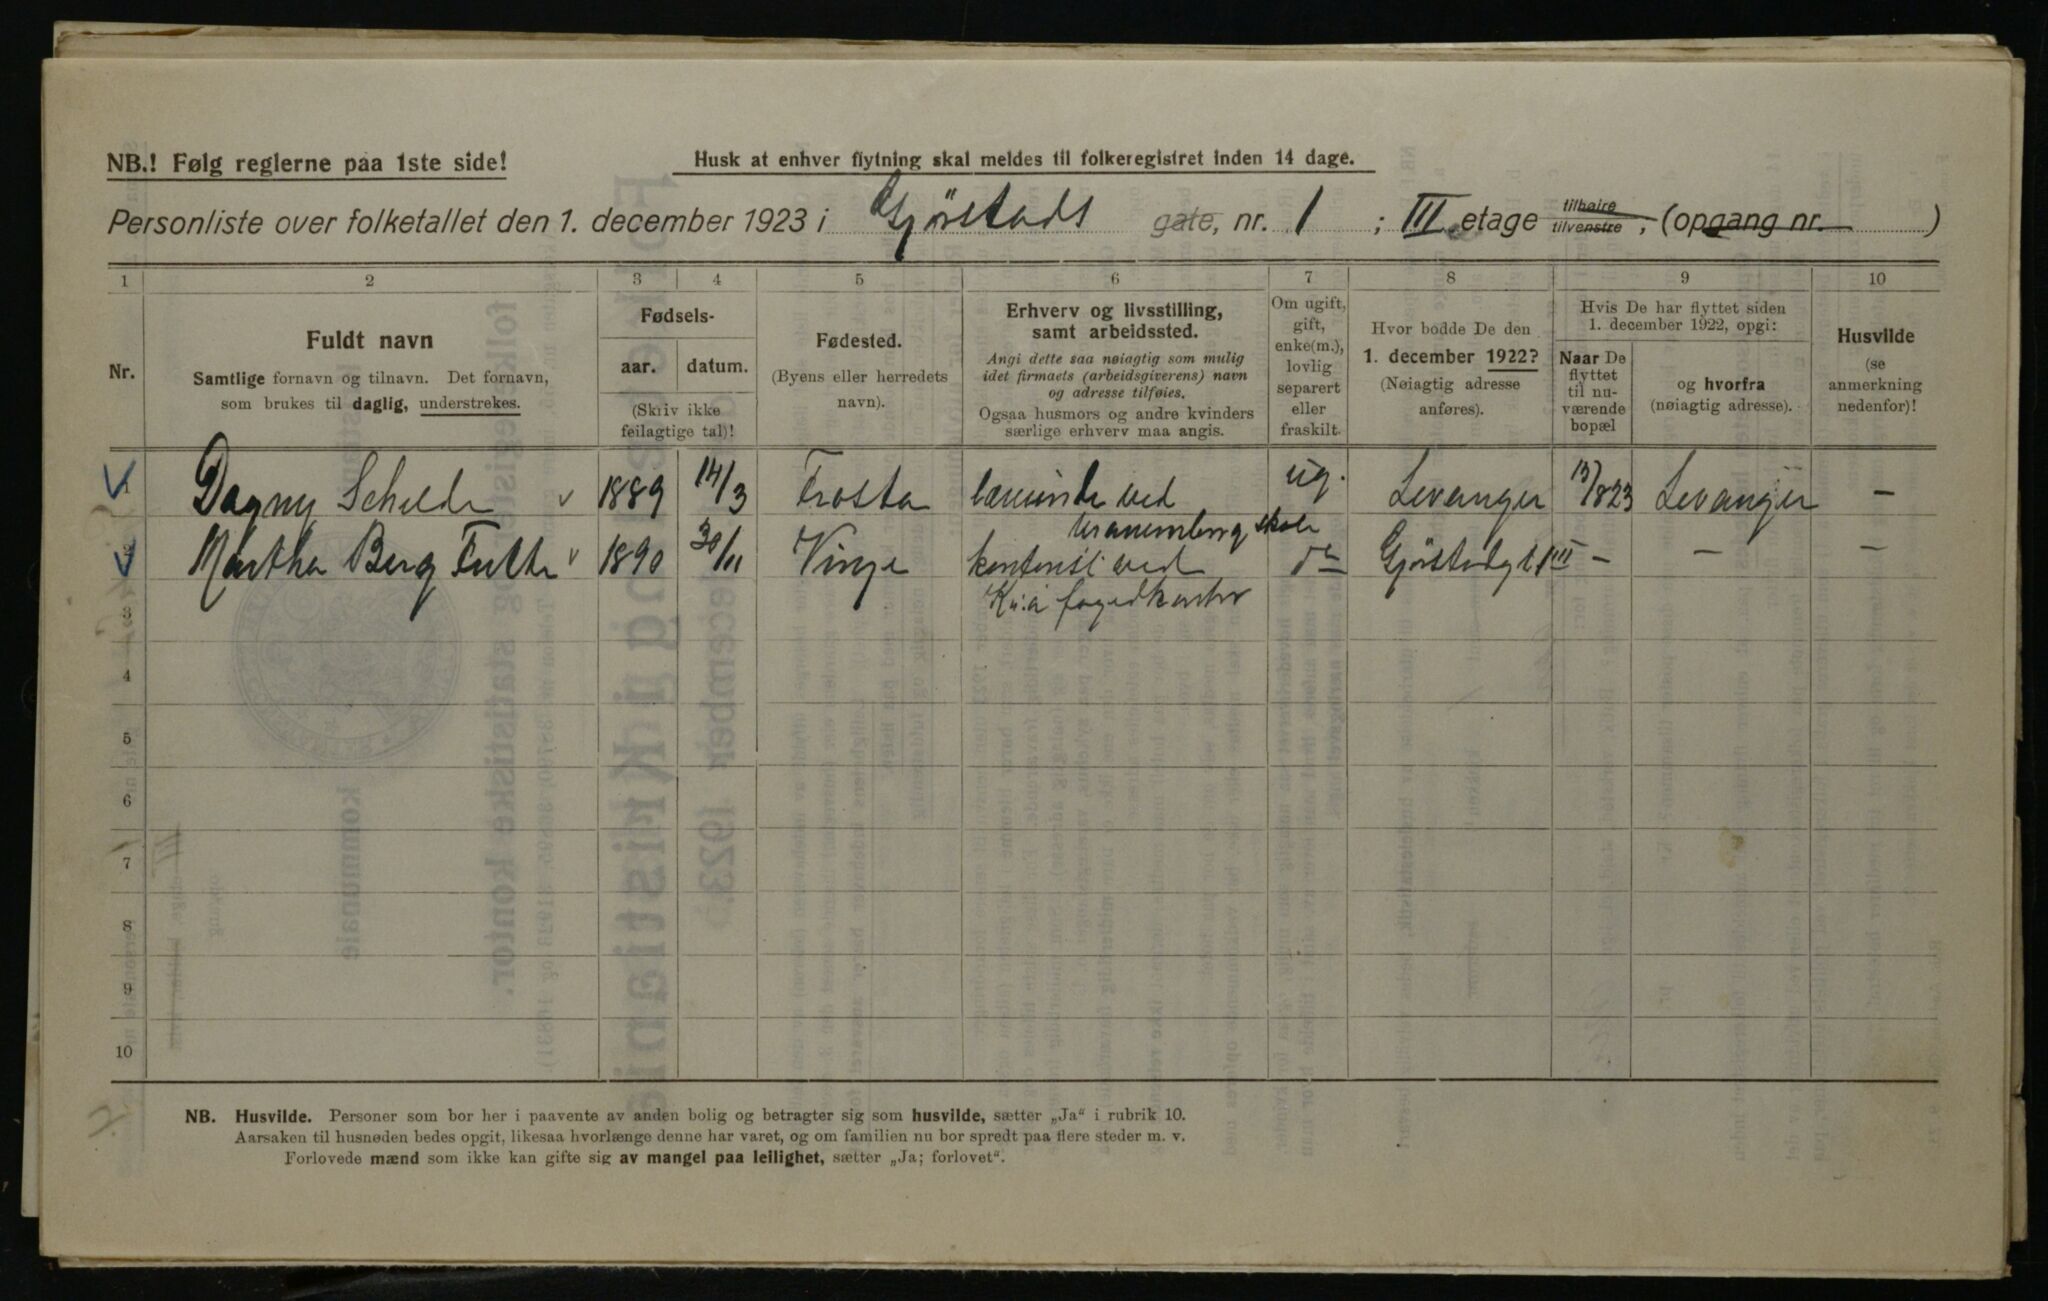 NB.! Følg reglerne paa 1ste side!
Husk at enhver flytning skal meldes til folkeregistret inden 14 dage.
Personliste over folketallet den 1. december 1923 i Gjørstads gate, nr. 1 ; III etage tilhøire tilvenstre, (opgang nr. )
1 2 3 4 5 6 7 8 9 10
Nr.
Fuldt navn
Samtlige fornavn og tilnavn. Det fornavn,
som brukes til daglig, understrekes.
Fødsels-
aar. datum.
(Skriv ikke
feilagtige tal)!
Fødested.
(Byens eller herredets
navn).
Erhverv og livsstilling,
samt arbeidssted.
Angi dette saa nøiagtig som mulig
idet firmaets (arbeidsgiverens) navn
og adresse tilføies.
Ogsaa husmors og andre kvinders
særlige erhverv maa angis.
Om ugift,
gift,
enke(m.),
lovlig
separert
eller
fraskilt.
Hvor bodde De den
1. december 1922?
(Nøiagtig adresse
anføres).
Hvis De har flyttet siden
1. december 1922, opgi:
Naar De
flyttet
til nu-
værende
bopæl
og hvorfra
(nøiagtig adresse).
Husvilde
(se
anmerkning
nedenfor)!
1 Dagny Schelde v 1889 14/3 Frosta lærerinde ved ug. Levanger 13/8 23 Levanger —
Uranienborg skole
2 Martha Berg v 1890 30/11 Vinje kontorist ved do Gjørstadgt 1 III — — —
Kr.a fogedkontor
3
4
5
6
7
8
9
10
NB. Husvilde. Personer som bor her i paavente av anden bolig og betragter sig som husvilde, sætter „Ja“ i rubrik 10.
Aarsaken til husnøden bedes opgit, likesaa hvorlænge denne har varet, og om familien nu bor spredt paa flere steder m. v.
Forlovede mænd som ikke kan gifte sig av mangel paa leilighet, sætter „Ja; forlovet“.